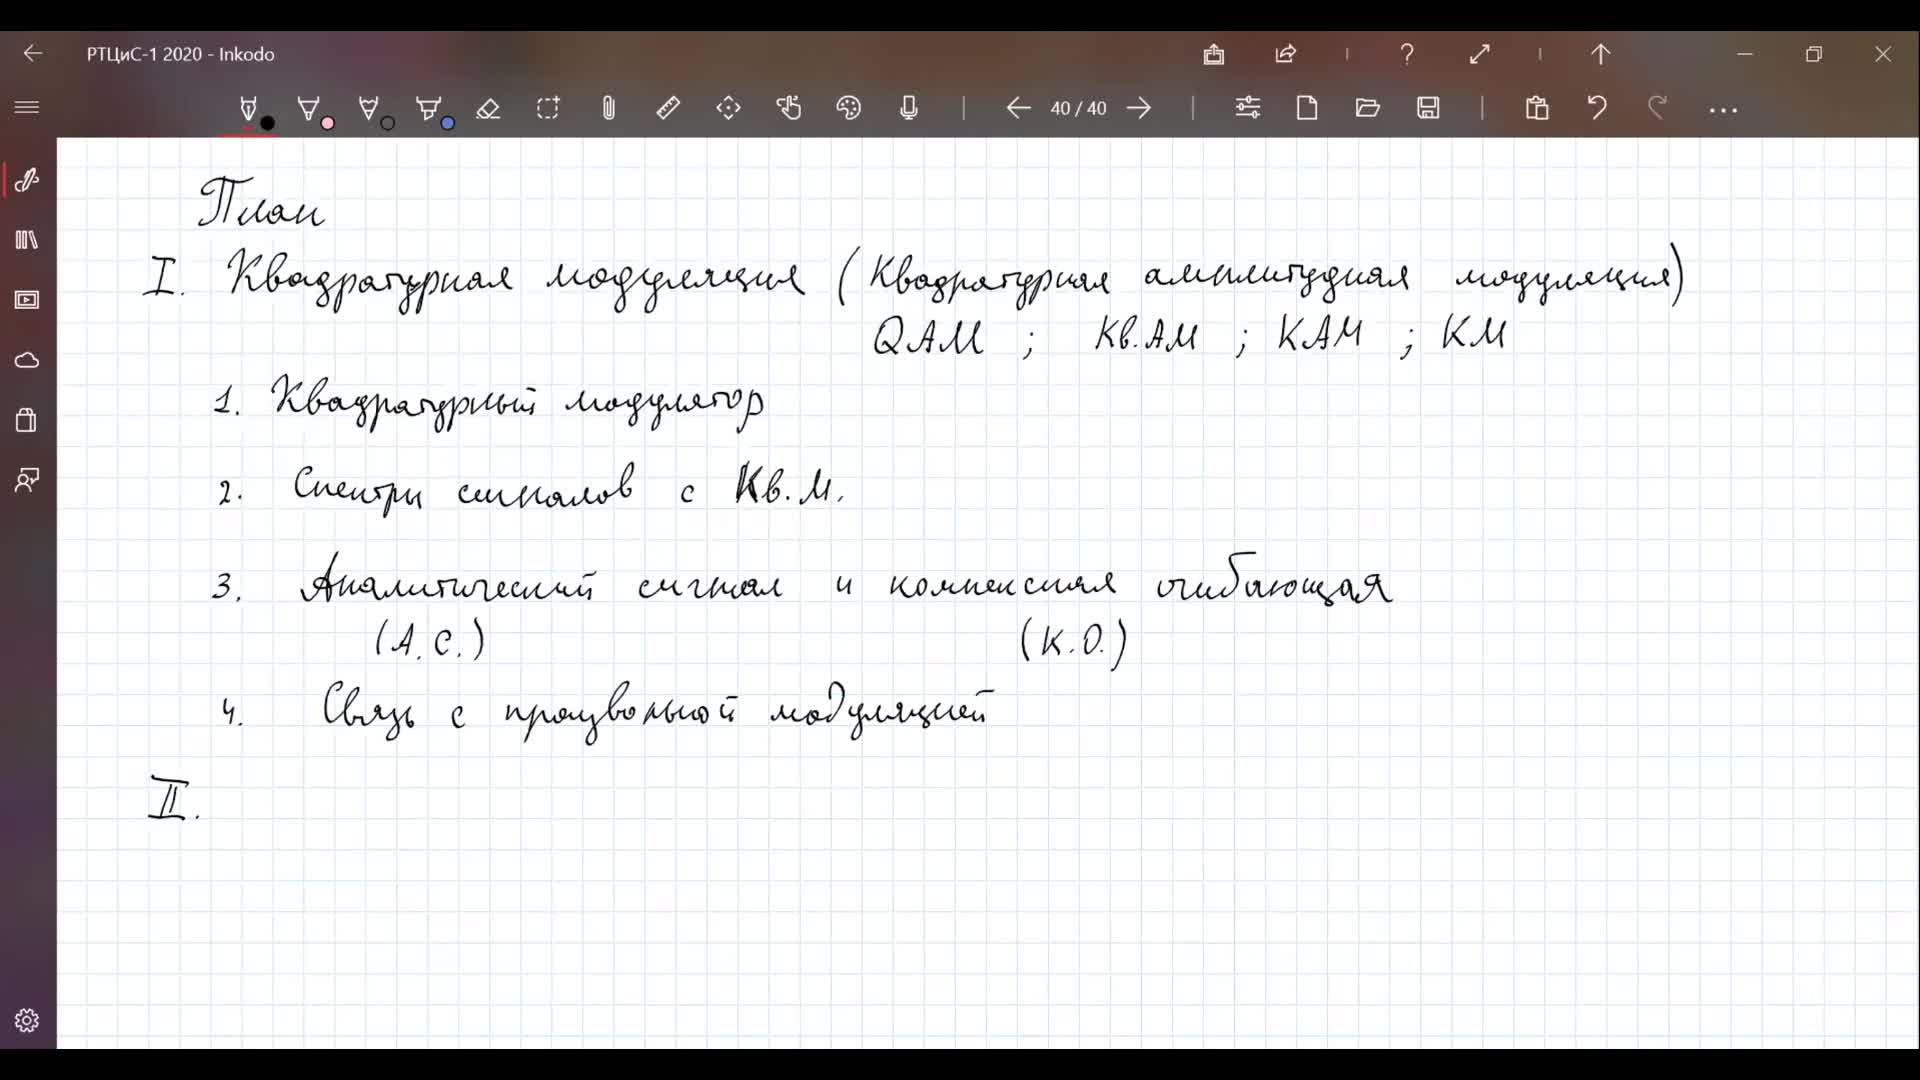 РТЦиС-1 2020 - Inkodo
40 / 40
План
I. Квадратурная модуляция (Квадратурная амплитудная модуляция)
QAM ; Кв.АМ ; КАМ ; КМ
1. Квадратурный модулятор
2. Спектры сигналов с Кв.М.
3. Аналитический сигнал и комплексная огибающая
(А.С.) (К.О.)
4. Связь с произвольной модуляцией
II.